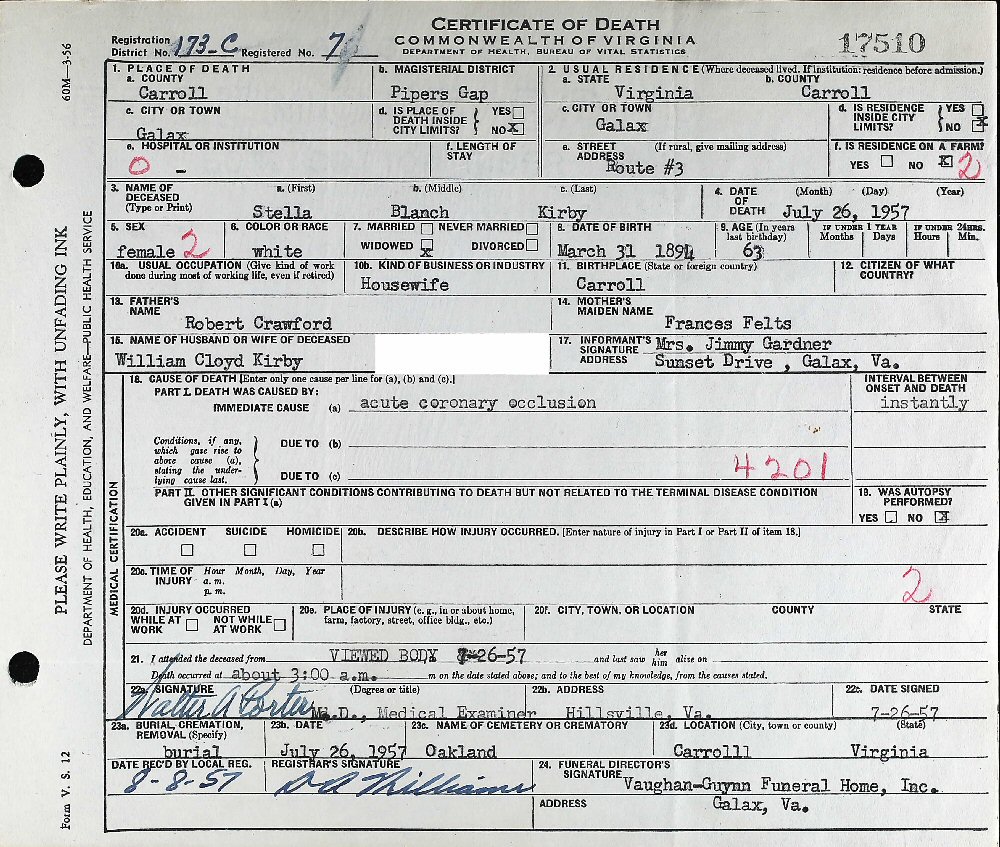 CERTIFICATE OF DEATH
COMMONWEALTH OF VIRGINIA
DEPARTMENT OF HEALTH, BUREAU OF VITAL STATISTICS
17510
Registration District No. 173-C Registered No. 7
60M—3-56
PLEASE WRITE PLAINLY, WITH UNFADING INK
DEPARTMENT OF HEALTH, EDUCATION, AND WELFARE—PUBLIC HEALTH SERVICE
Form V. S. 12
1. PLACE OF DEATH
a. COUNTY
Carroll
b. MAGISTERIAL DISTRICT
Pipers Gap
2. USUAL RESIDENCE (Where deceased lived. If institution: residence before admission.)
a. STATE
Virginia
b. COUNTY
Carroll
c. CITY OR TOWN
Galax
d. IS PLACE OF DEATH INSIDE CITY LIMITS? YES NO X
c. CITY OR TOWN
Galax
d. IS RESIDENCE INSIDE CITY LIMITS? YES NO X
e. HOSPITAL OR INSTITUTION
0 -
f. LENGTH OF STAY
e. STREET ADDRESS (If rural, give mailing address)
Route #3
f. IS RESIDENCE ON A FARM?
YES NO X 2
3. NAME OF DECEASED (Type or Print)
a. (First) b. (Middle) c. (Last)
Stella Blanch Kirby
4. DATE OF DEATH (Month) (Day) (Year)
July 26, 1957
5. SEX
female 2
6. COLOR OR RACE
white
7. MARRIED NEVER MARRIED
WIDOWED x DIVORCED
8. DATE OF BIRTH
March 31 1894
9. AGE (In years last birthday)
63
IF UNDER 1 YEAR
Months Days
IF UNDER 24HRS.
Hours Min.
10a. USUAL OCCUPATION (Give kind of work done during most of working life, even if retired)
10b. KIND OF BUSINESS OR INDUSTRY
Housewife
11. BIRTHPLACE (State or foreign country)
Carroll
12. CITIZEN OF WHAT COUNTRY?
13. FATHER'S NAME
Robert Crawford
14. MOTHER'S MAIDEN NAME
Frances Felts
15. NAME OF HUSBAND OR WIFE OF DECEASED
William Cloyd Kirby
17. INFORMANT'S SIGNATURE Mrs. Jimmy Gardner
ADDRESS Sunset Drive , Galax, Va.
MEDICAL CERTIFICATION
18. CAUSE OF DEATH [Enter only one cause per line for (a), (b) and (c).]
PART I. DEATH WAS CAUSED BY:
IMMEDIATE CAUSE (a) acute coronary occlusion
INTERVAL BETWEEN ONSET AND DEATH
instantly
Conditions, if any, which gave rise to above cause (a), stating the under-lying cause last.
DUE TO (b)
DUE TO (c)
4201
PART II. OTHER SIGNIFICANT CONDITIONS CONTRIBUTING TO DEATH BUT NOT RELATED TO THE TERMINAL DISEASE CONDITION GIVEN IN PART I (a)
19. WAS AUTOPSY PERFORMED?
YES NO X
20a. ACCIDENT SUICIDE HOMICIDE
20b. DESCRIBE HOW INJURY OCCURRED. [Enter nature of injury in Part I or Part II of item 18.]
20c. TIME OF INJURY Hour Month, Day, Year
a. m.
p. m.
2
20d. INJURY OCCURRED
WHILE AT WORK NOT WHILE AT WORK
20e. PLACE OF INJURY (e. g., in or about home, farm, factory, street, office bldg., etc.)
20f. CITY, TOWN, OR LOCATION COUNTY STATE
21. I attended the deceased from VIEWED BODY 7-26-57 and last saw her him alive on
Death occurred at about 3:00 a.m. m on the date stated above; and to the best of my knowledge, from the causes stated.
22a. SIGNATURE (Degree or title)
Walter A Porter M.D., Medical Examiner
22b. ADDRESS
Hillsville, Va.
22c. DATE SIGNED
7-26-57
23a. BURIAL, CREMATION, REMOVAL (Specify)
burial
23b. DATE
July 26, 1957
23c. NAME OF CEMETERY OR CREMATORY
Oakland
23d. LOCATION (City, town or county) (State)
Carrolll Virginia
DATE REC'D BY LOCAL REG.
8-8-57
REGISTRAR'S SIGNATURE
Williams
24. FUNERAL DIRECTOR'S SIGNATURE Vaughan-Guynn Funeral Home, Inc.
ADDRESS Galax, Va.